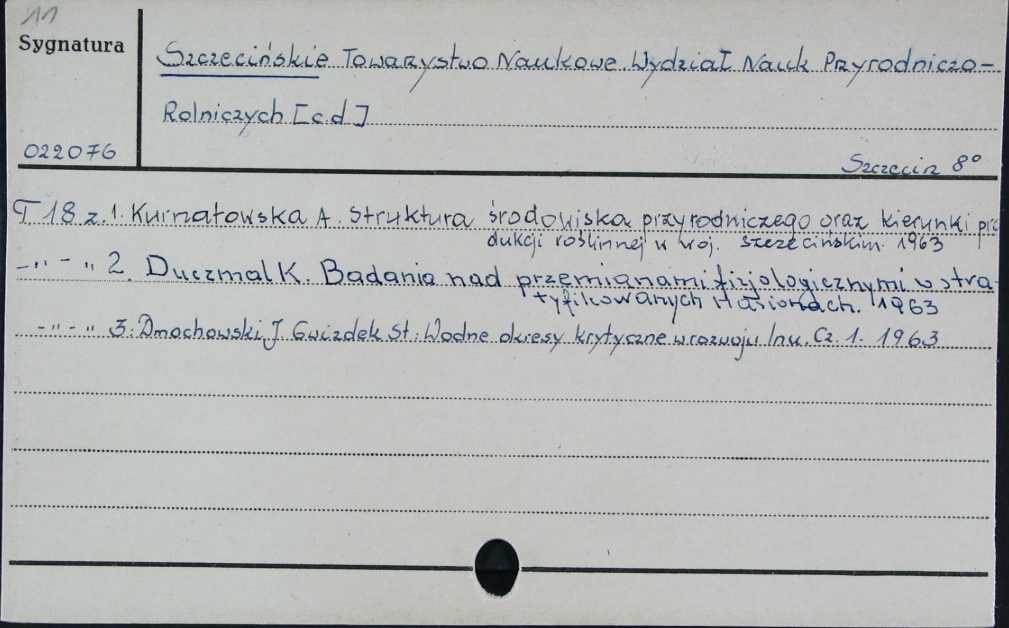 11
Sygnatura
Szczecińskie Towarzystwo Naukowe. Wydział Nauk Przyrodniczo-
Rolniczych [c.d]
022076
Szczecin 8°
T 18 z. 1. Kurnatowska A. Struktura środowiska przyrodniczego oraz kierunki pro
dukcji roślinnej w woj. szczecińskim. 1963
-"- " 2. Duczmal K. Badania nad przemianami fizjologicznymi w stra-
tyfikowanych nasionach. 1963
-"- " 3: Dmochowski J. Gwizdek St: Wodne okresy krytyczne w rozwoju lnu. Cz. 1. 1963